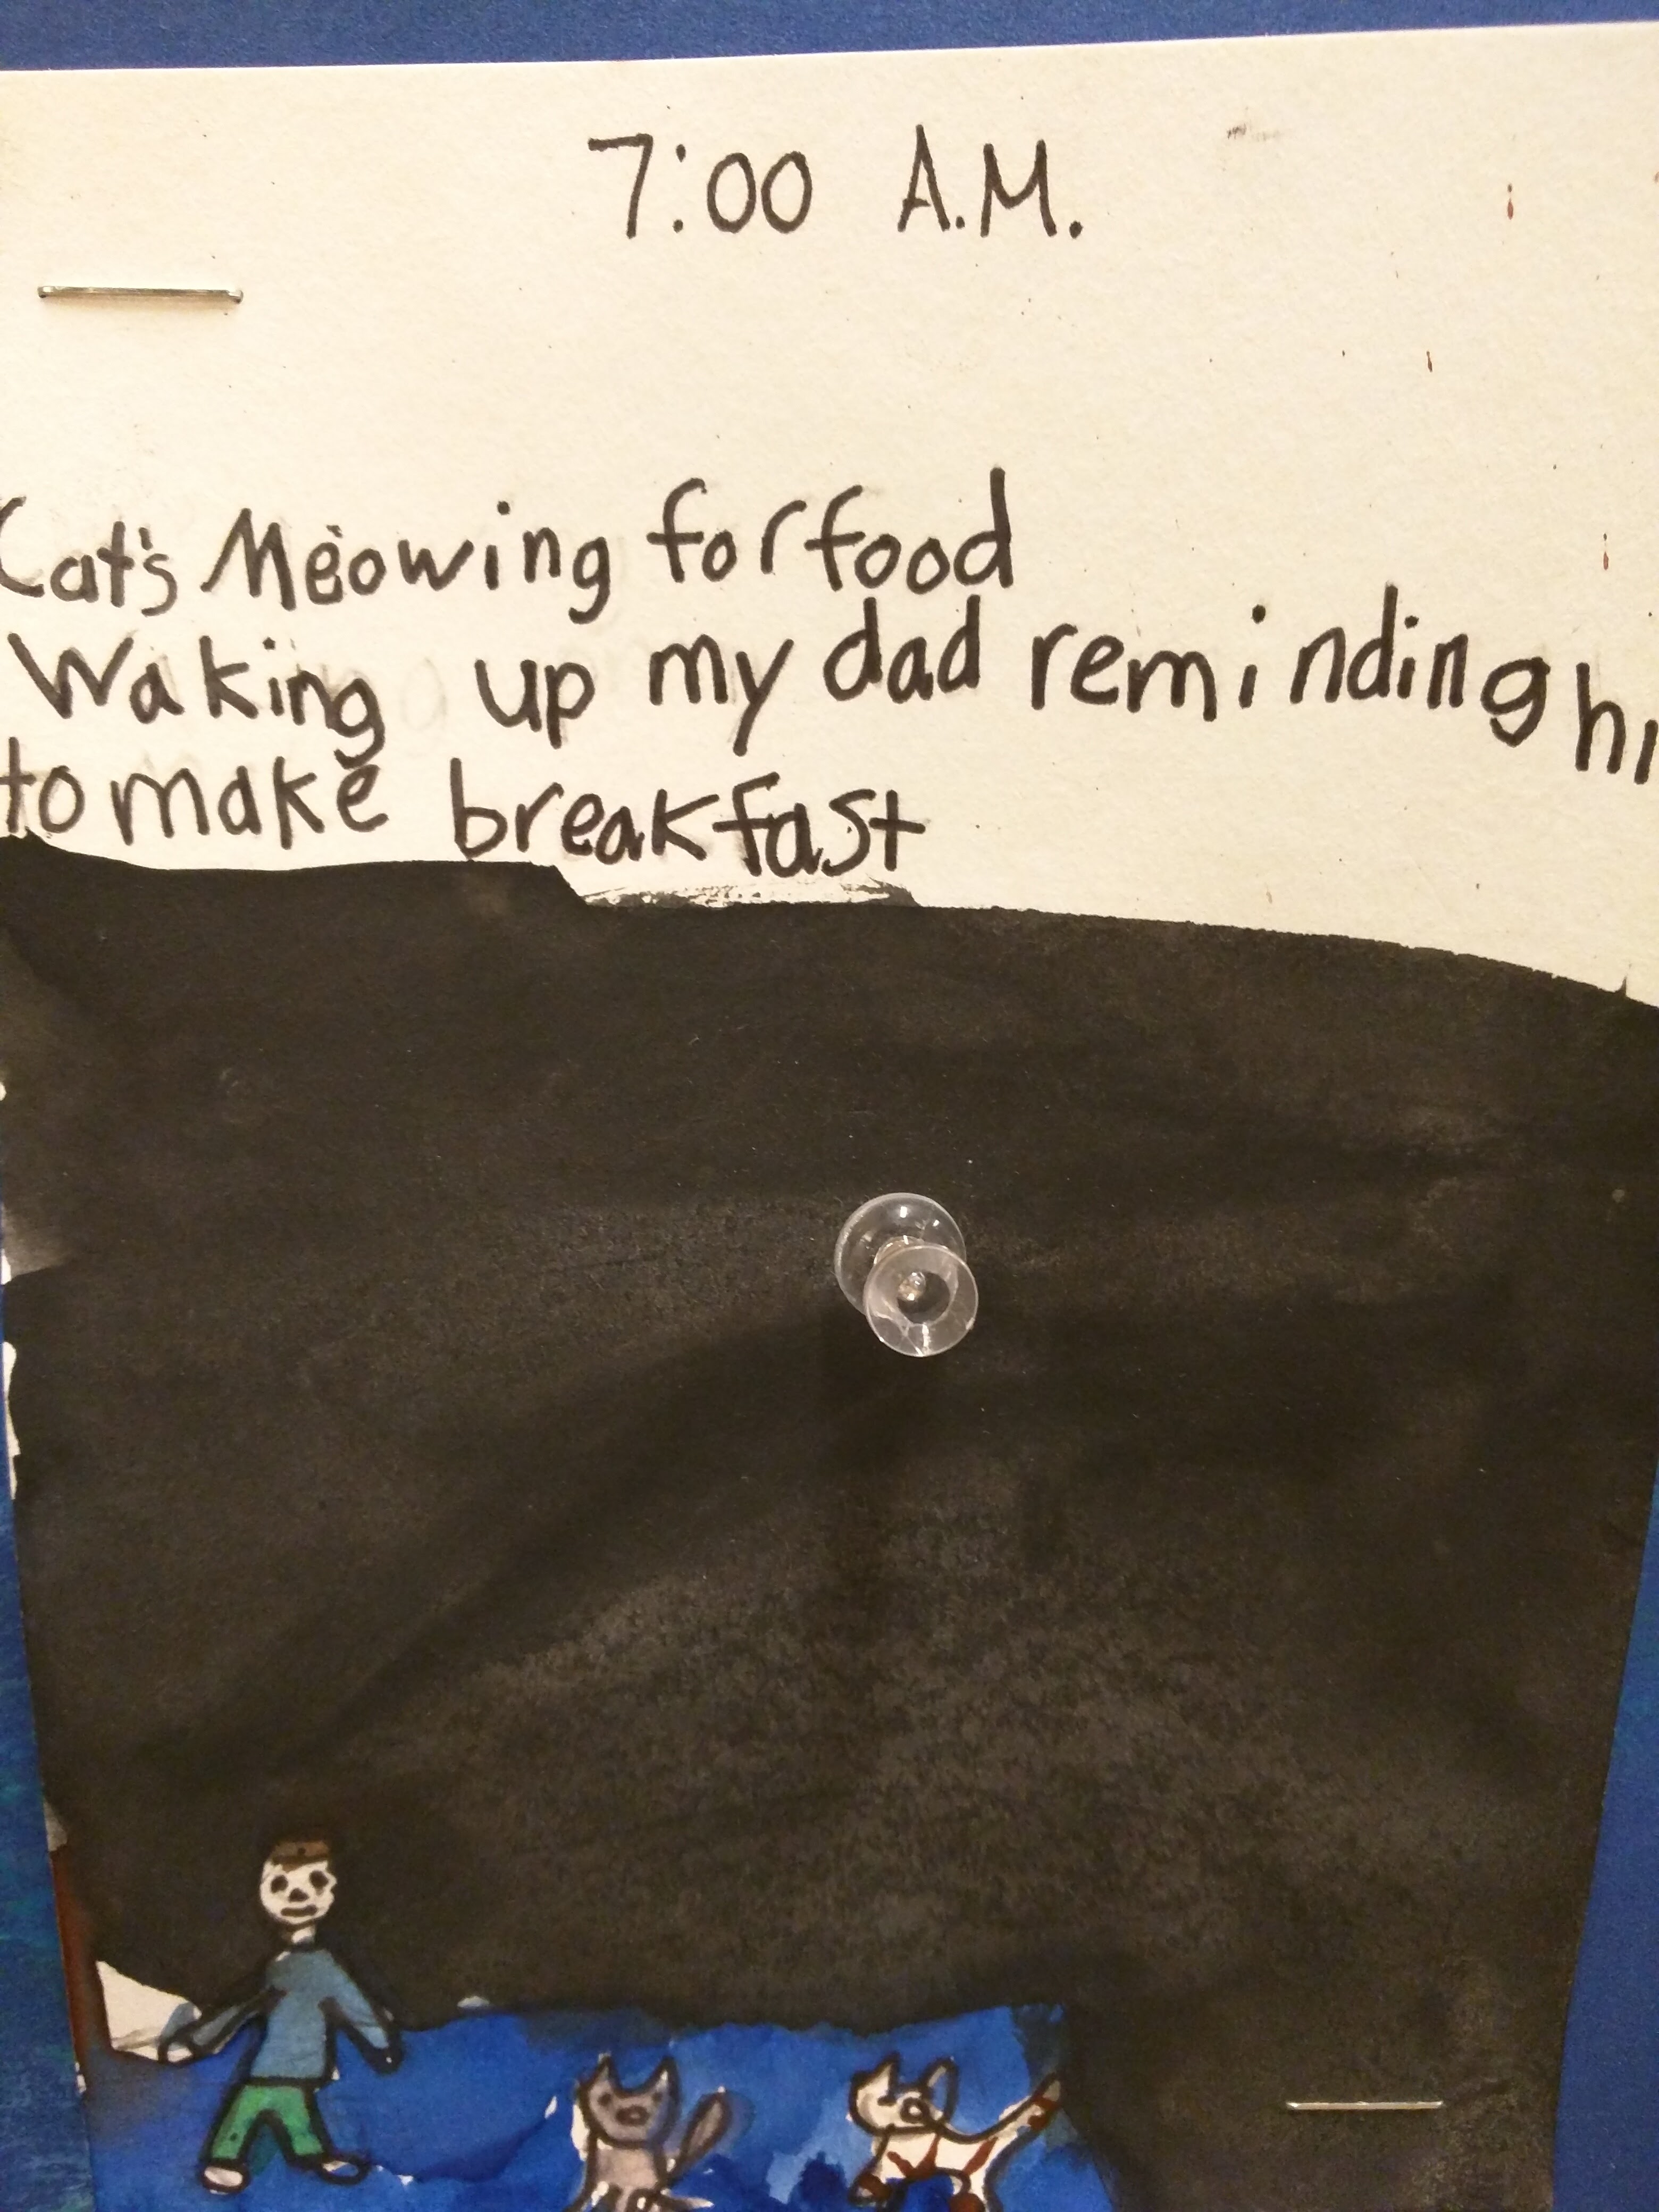 7:00 A.M.
Cat's Meowing for food
Waking up my dad reminding hi
to make breakfast